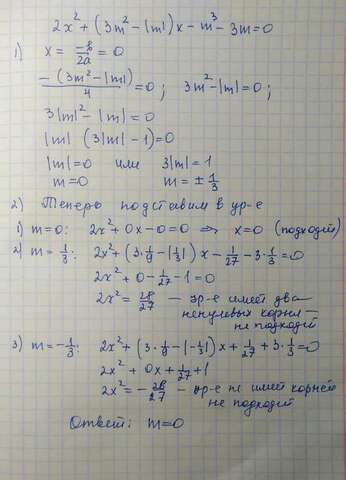 2x² + (3m² - |m|)x - m³ - 3m = 0
1) x = -b/2a = 0
-(3m² - |m|)/4 = 0 ; 3m² - |m| = 0 ;
3|m|² - |m| = 0
|m| (3|m| - 1) = 0
|m| = 0 или 3|m| = 1
m = 0 m = ± 1/3
2) Теперь подставим в ур-е
1) m = 0: 2x² + 0x - 0 = 0 ⇒ x = 0 (подходит)
2) m = 1/3: 2x² + (3·1/9 - |1/3|) x - 1/27 - 3·1/3 = 0
2x² + 0 - 1/27 - 1 = 0
2x² = 28/27 - ур-е имеет два
ненулевых корня -
не подходит
3) m = -1/3: 2x² + (3·1/9 - |-1/3|) x + 1/27 + 3·1/3 = 0
2x² + 0x + 1/27 + 1
2x² = - 28/27 - ур-е не имеет корней
не подходит
Ответ: m = 0